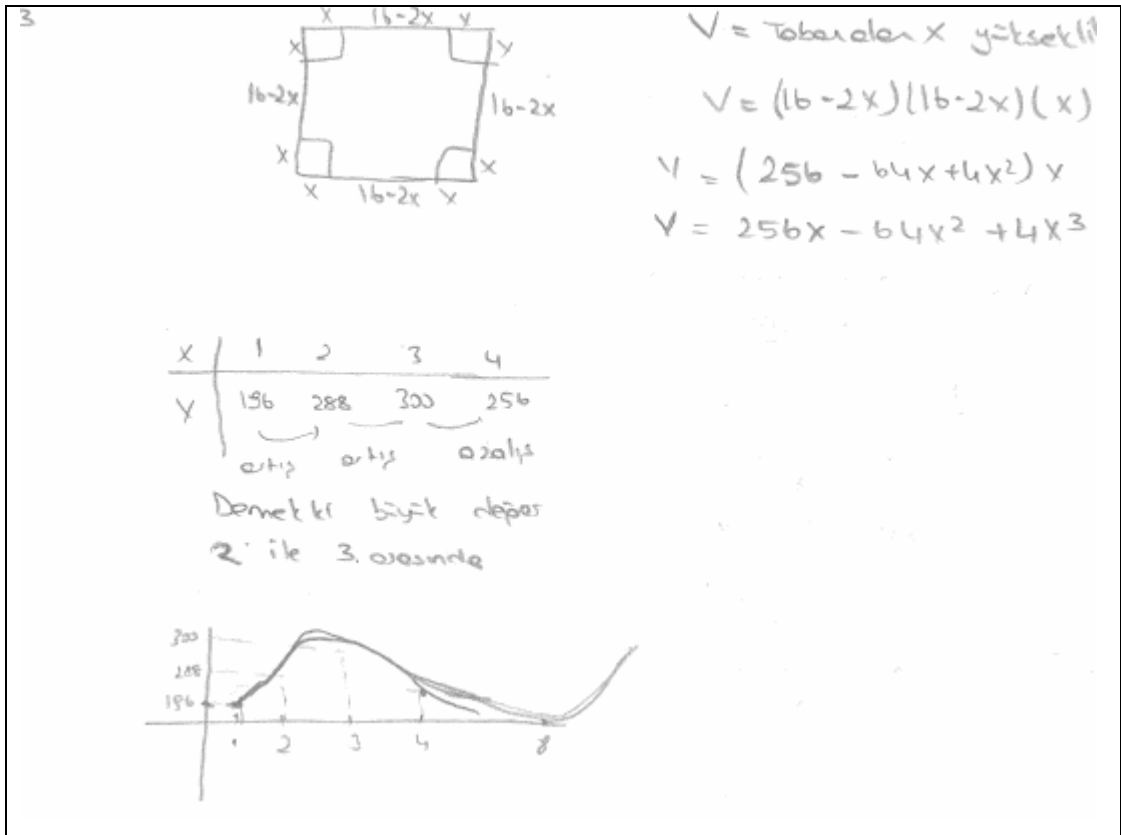 3
x 16-2x x
x x
16-2x 16-2x
x x
x 16-2x x
V = Tabanalan x yüksekli
V = (16-2x)(16-2x)(x)
V = (256 - 64x+4x²) x
V = 256x - 64x² + 4x³
x 1 2 3 4
V 196 288 300 256
artış artış azalış
Demekki büyük değer
2 ile 3. arasında
300
288
196
1 2 3 4 8